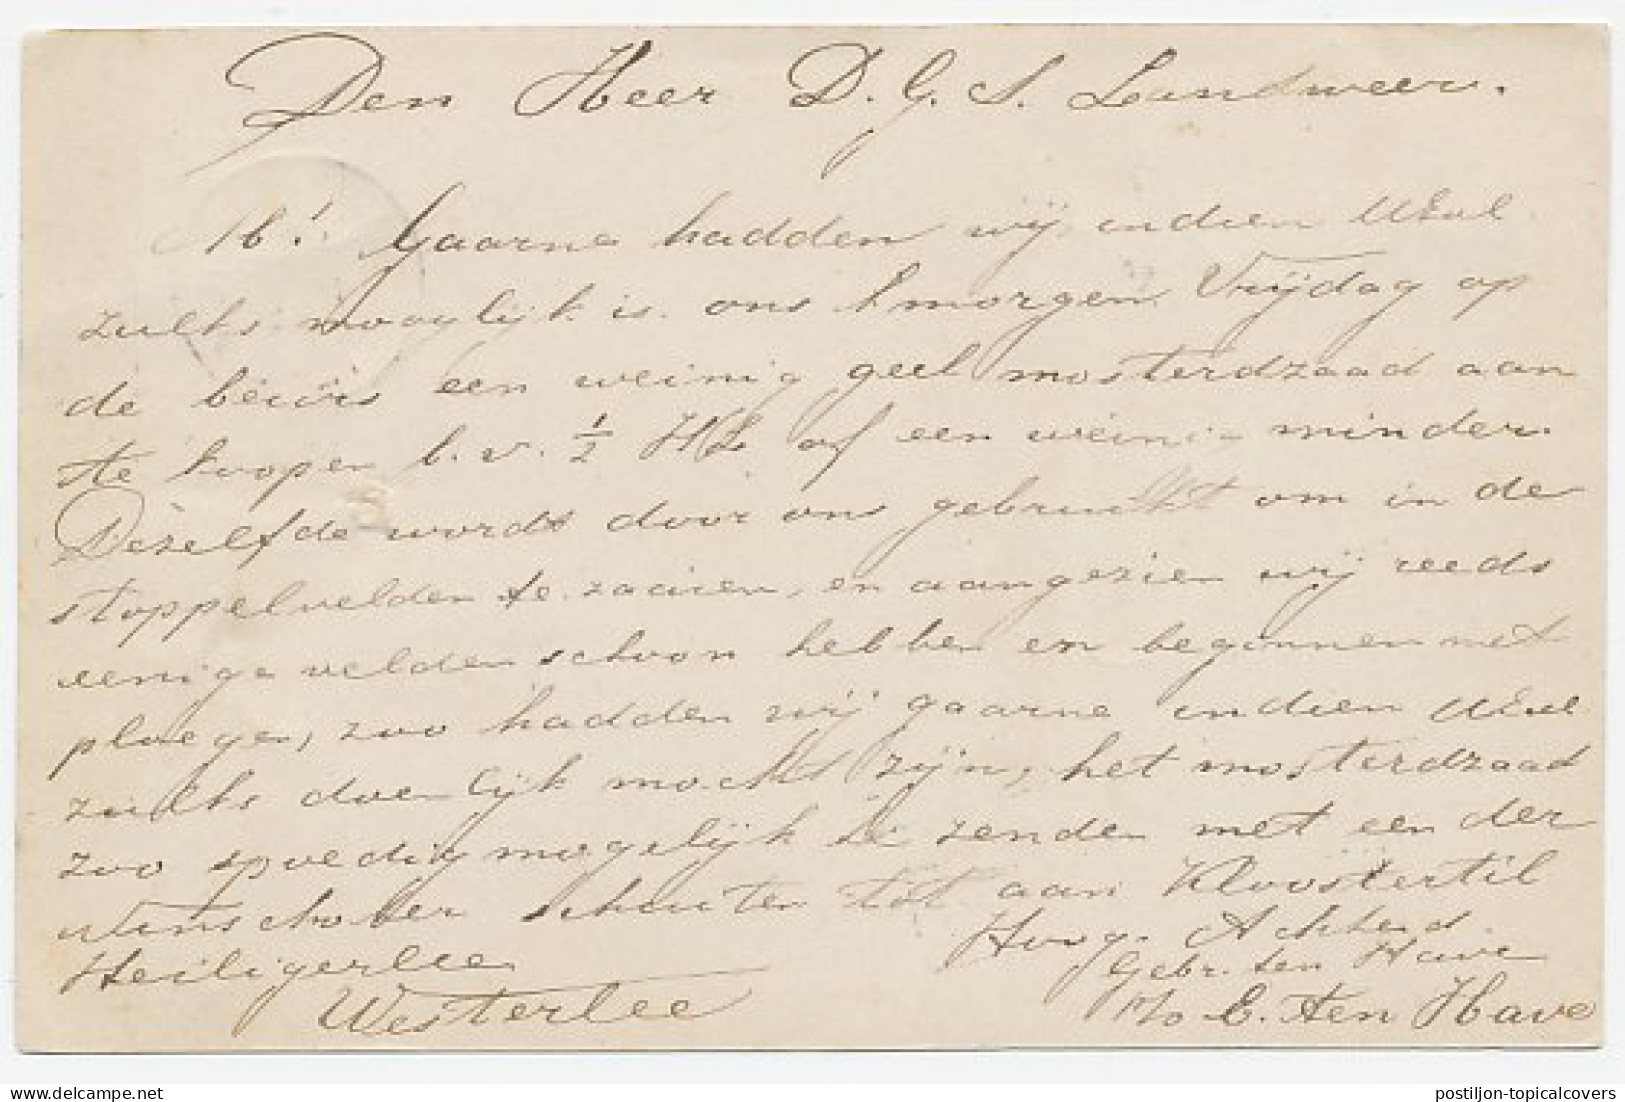 Den Heer D. G. S. Landweer.
M! Gaarne hadden wij, indien UEd
zulks mooglijk is. ons morgen Vrijdag op
de beurs een weinig geel mosterdzaad aan
te koopen b.v. ½ HL of een weinig minder.
Dezelfde wordt door ons gebruikt om in de
stoppelvelden te zaaien, en aangezien wij reeds
eenige velden schoon hebben en beginnen met
ploegen, zoo hadden wij gaarne indien UEd
zulks doenlijk mocht zijn, het mosterdzaad
zoo spoedig mogelijk te zenden met een der
Winschoter schuiten tot aan Kloostertil
Heiligerlee Hoog. Achtend
Gebr. ten Have
Westerlee p/o E. ten Have
delcampe.net
postiljon-topicalcovers